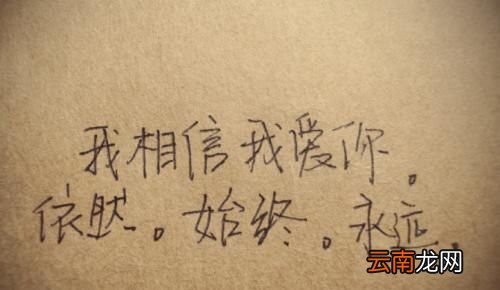 我相信我爱你。
依然。始终。永远。
云南龙网